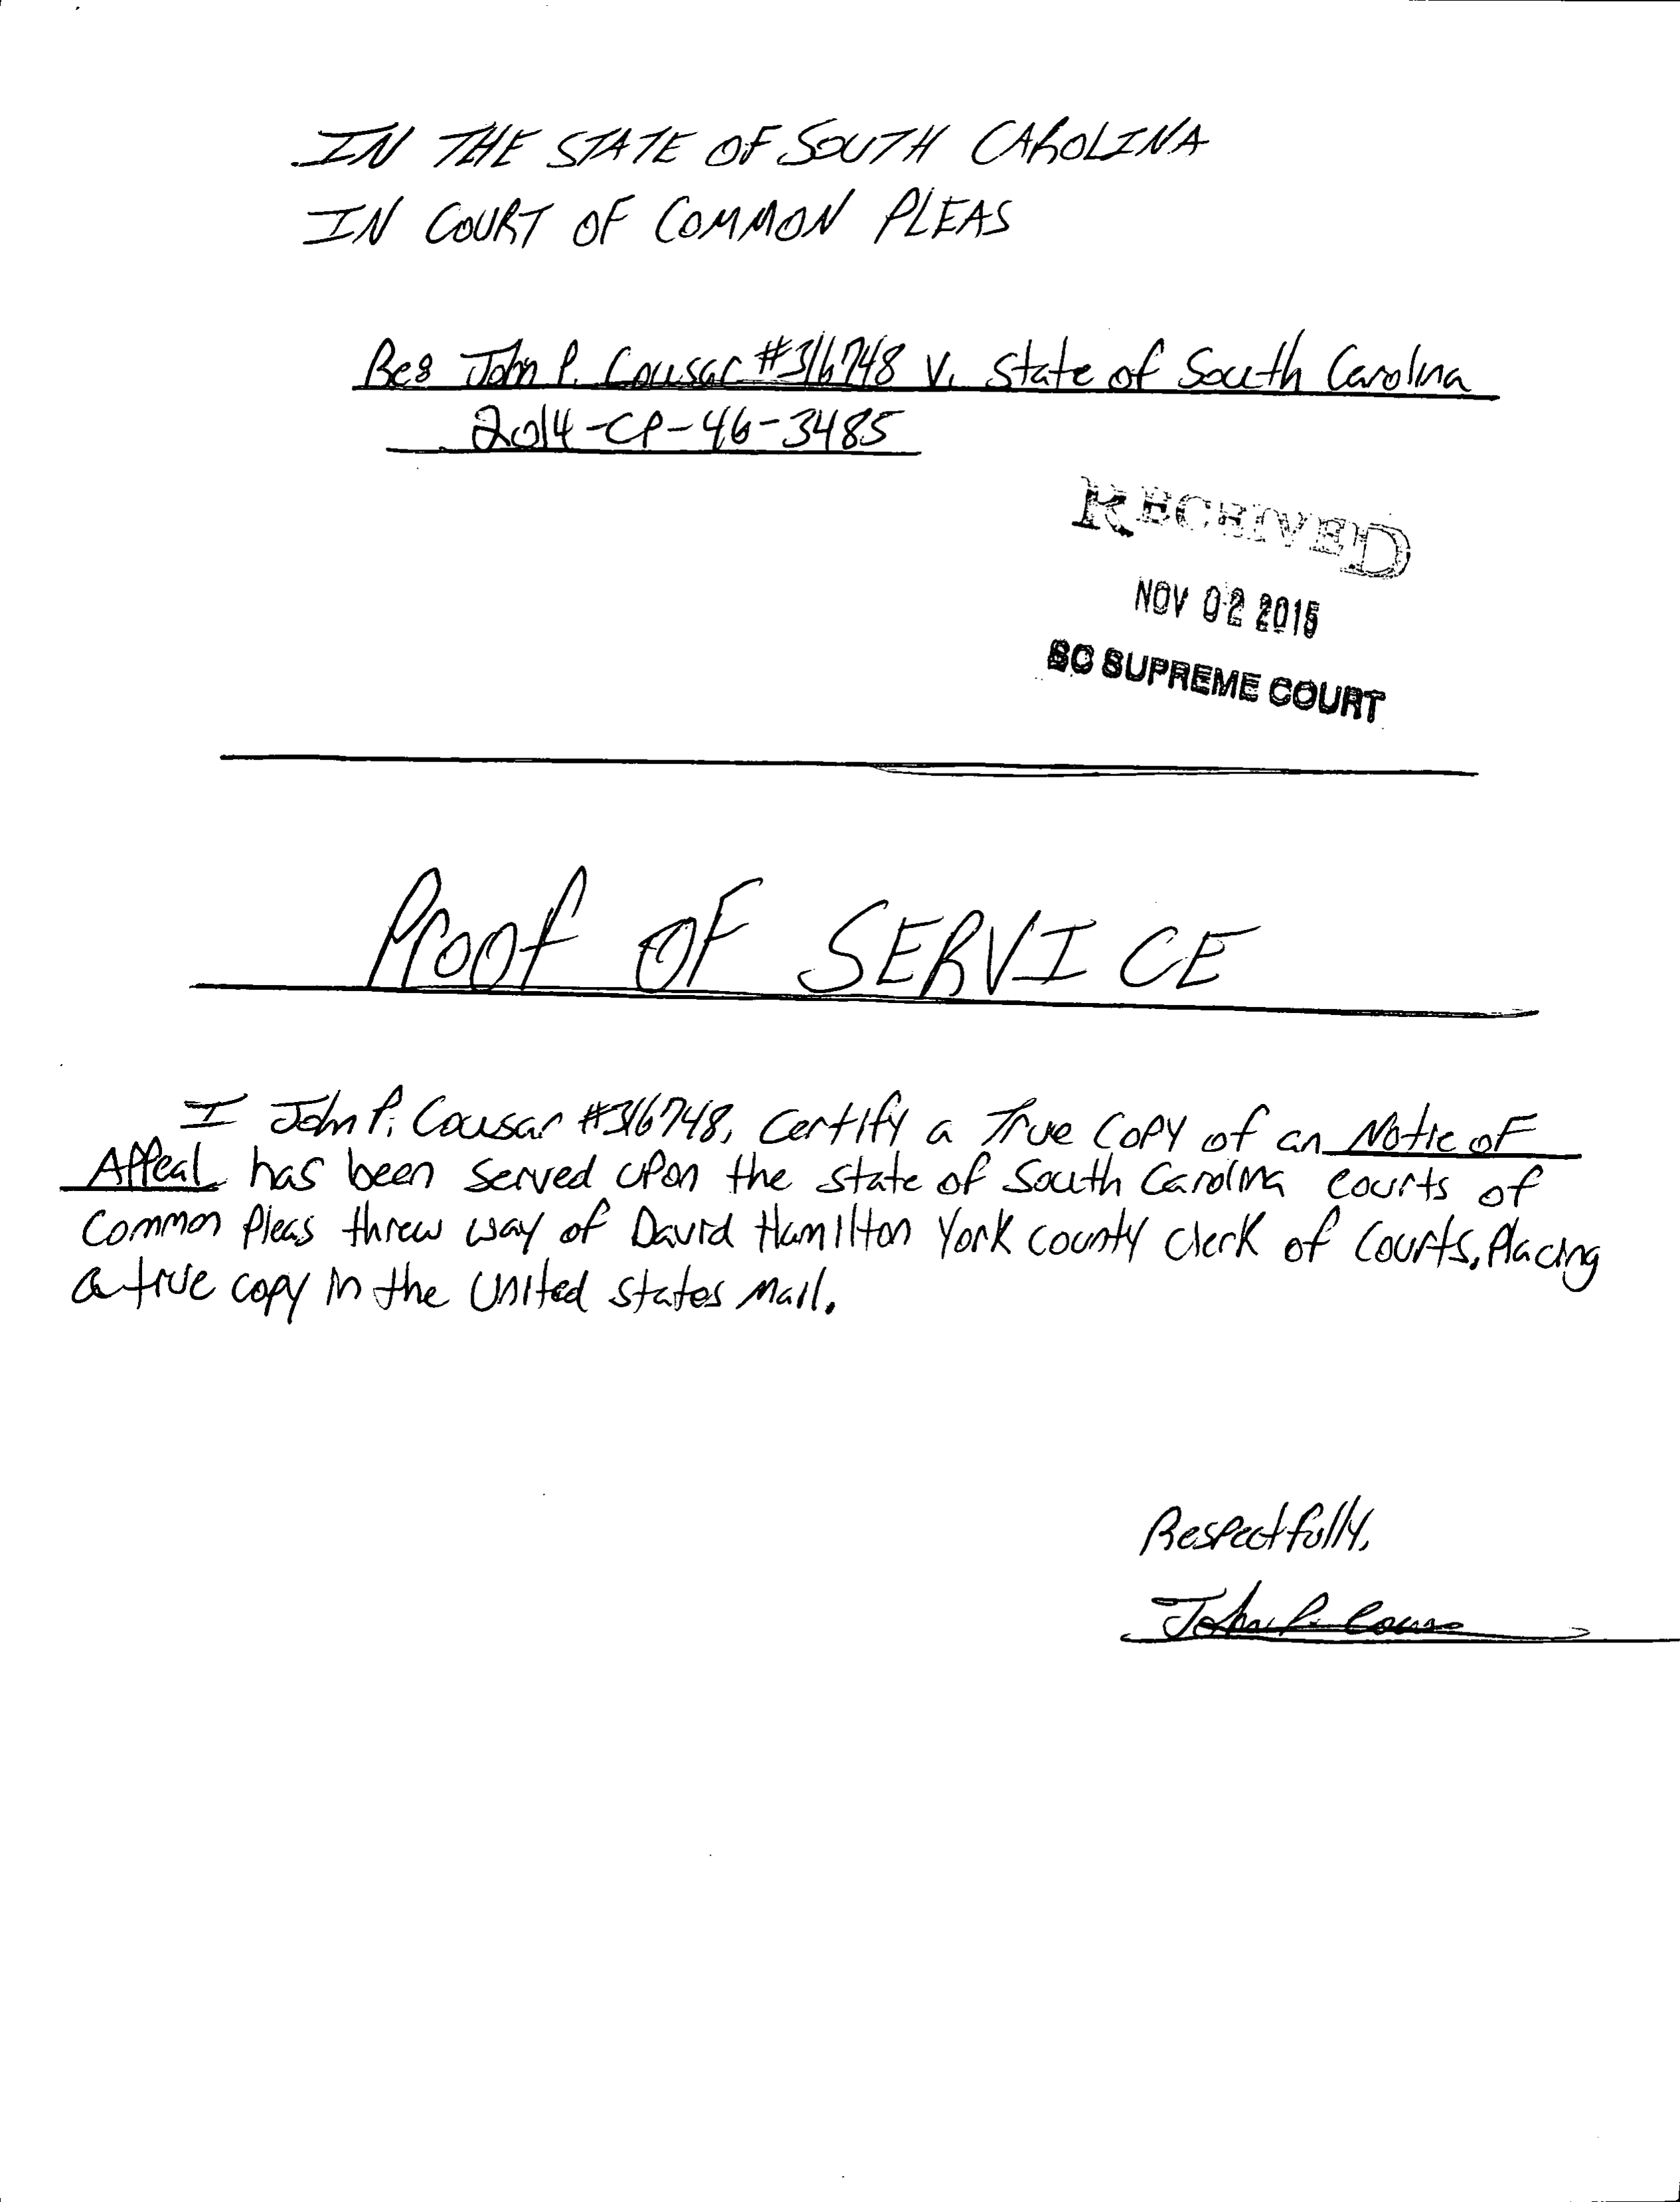 IN THE STATE OF SOUTH CAROLINA
IN COURT OF COMMON PLEAS
Re: John P. Cousar #316748 V. State of South Carolina
2014-CP-46-3485
RECEIVED
NOV 02 2015
SC SUPREME COURT
Proof OF SERVICE
I John P. Cousar #316748, Certify a True Copy of an Notic of
Appeal has been served upon the state of South Carolina courts of
Common Pleas threw way of David Hamilton York county clerk of Courts, Placing
a true copy in the United States Mail.
Respectfully,
John P. Cousar